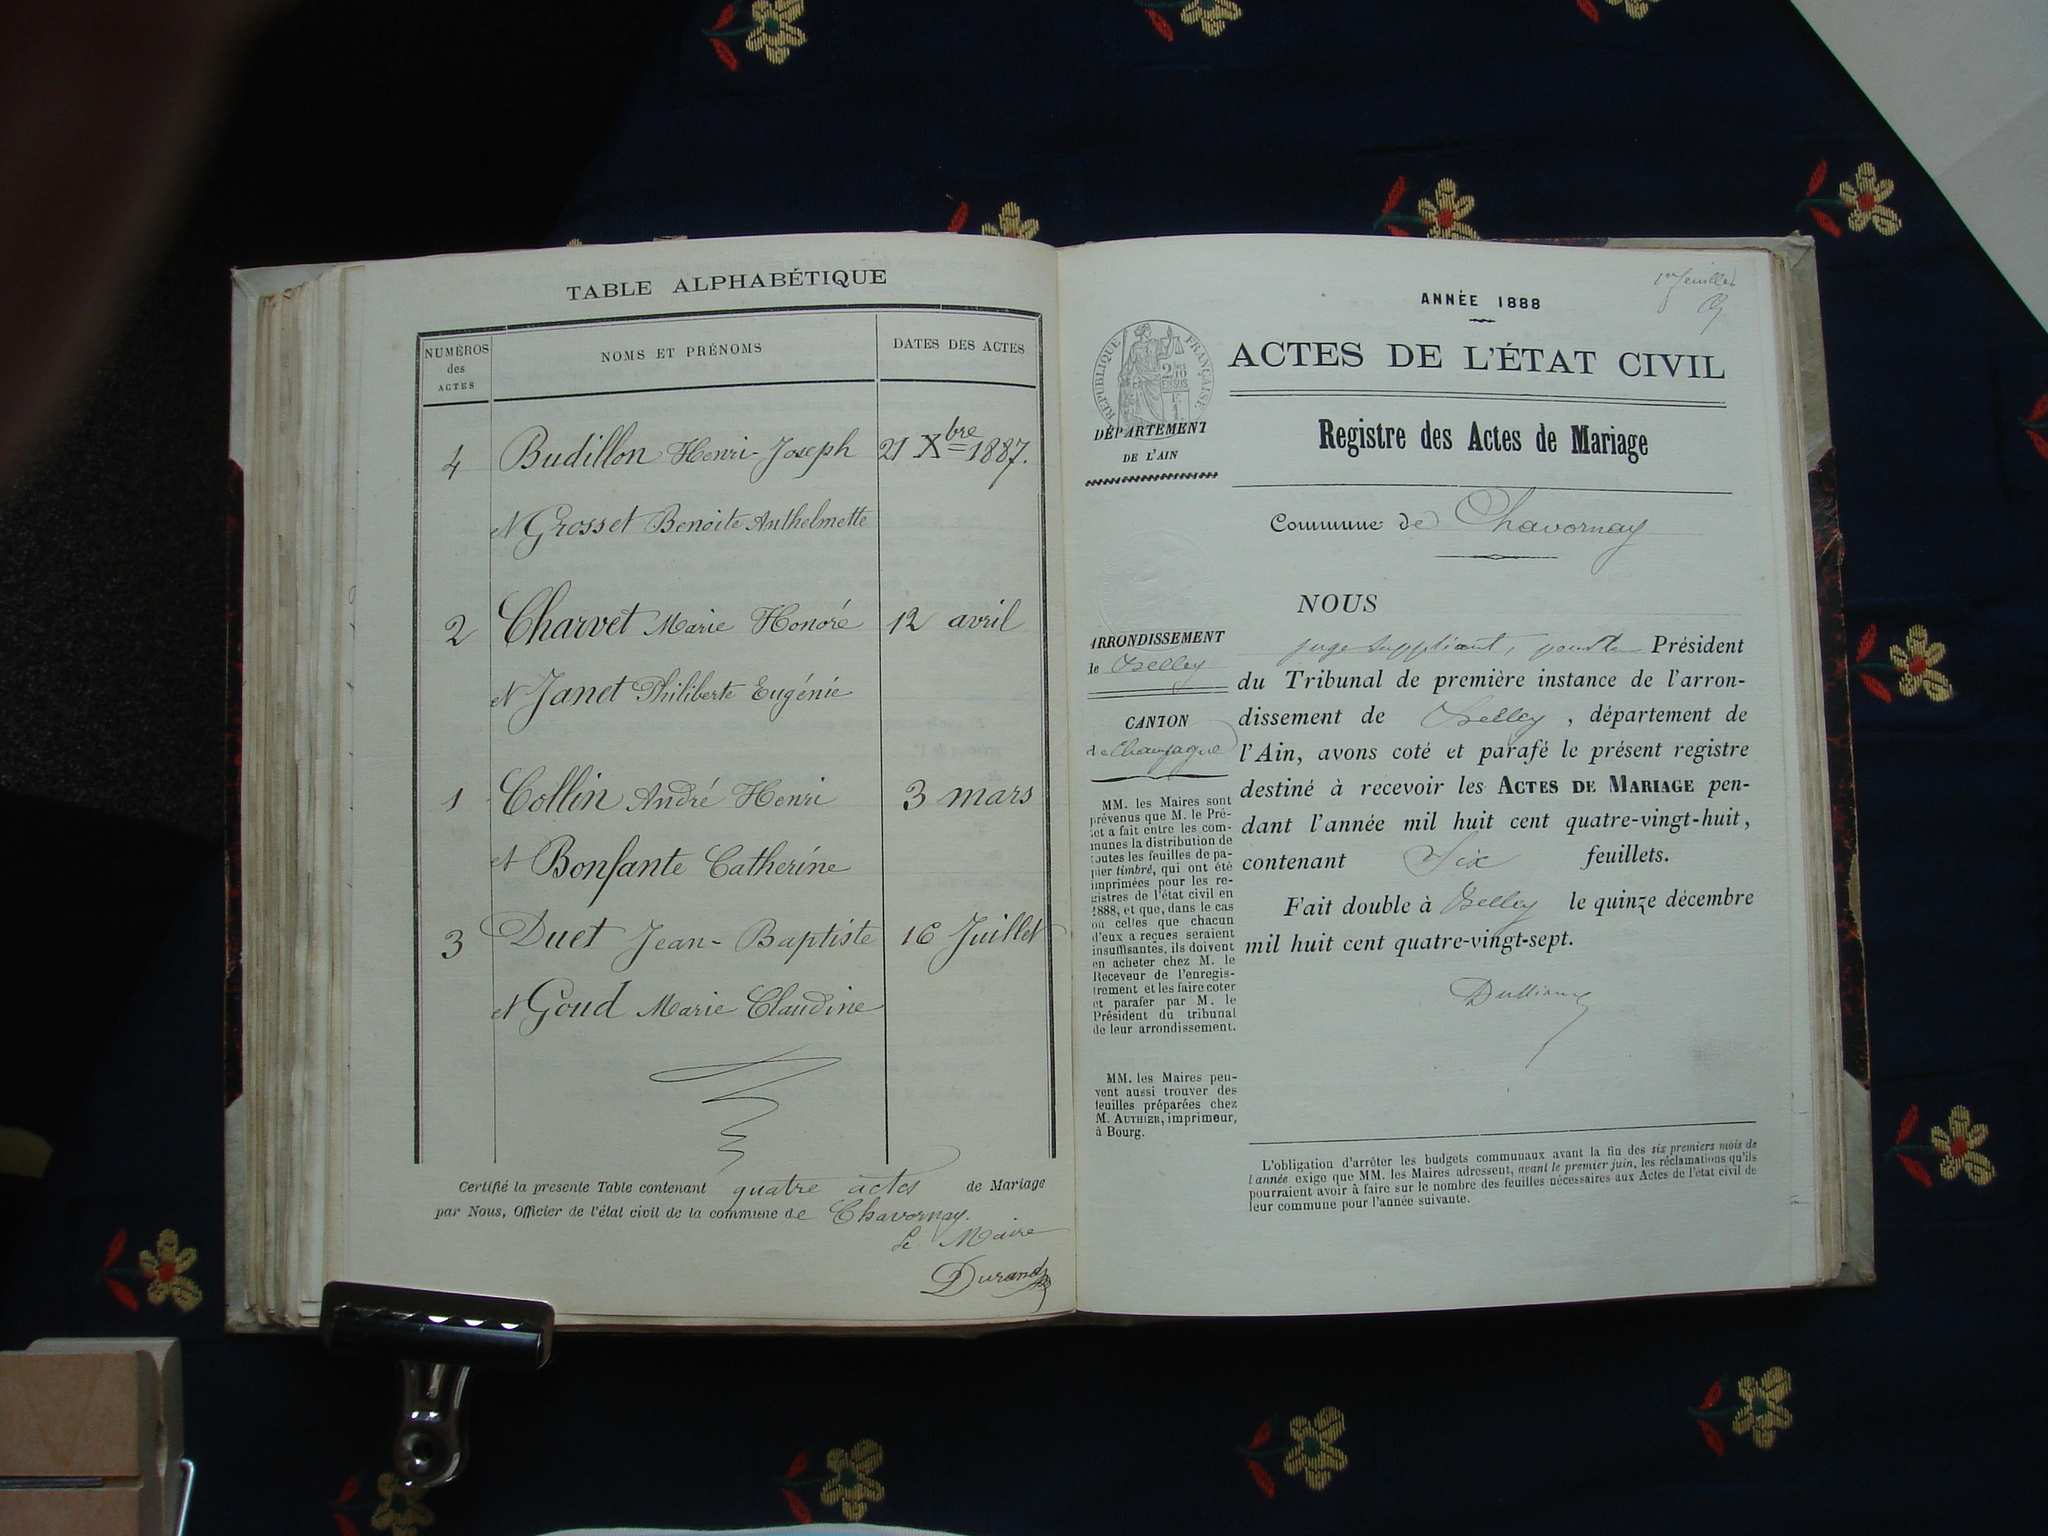 TABLE ALPHABÉTIQUE
NUMÉROS
des
ACTES
NOMS ET PRÉNOMS
DATES DES ACTES
4 Budillon Henri-Joseph 21 Xbre 1887.
et Grosset Benoite Anthelmette
2 Charvet Marie Honoré 12 avril
et Janet Philiberte Eugénie
1 Collin André Henri 3 mars
et Bonfante Catherine
3 Duet Jean-Baptiste 16 Juillet
et Goud Marie Claudine
Certifié la présente Table contenant quatre actes de Mariage
par Nous, Officier de l'état civil de la commune de Chavornay.
Le Maire
Durand
1er feuillet
ANNÉE 1888
ACTES DE L'ÉTAT CIVIL
RÉPUBLIQUE FRANÇAISE
DÉPARTEMENT
DE L'AIN
Registre des Actes de Mariage
Commune de Chavornay
ARRONDISSEMENT
de Belley
CANTON
de Champagne
MM. les Maires sont
prévenus que M. le Pré-
fet a fait entre les com-
munes la distribution de
toutes les feuilles de pa-
pier timbré, qui ont été
imprimées pour les re-
gistres de l'état civil en
1888, et que, dans le cas
où celles que chacun
d'eux a reçues seraient
insuffisantes, ils doivent
en acheter chez M. le
Receveur de l'enregis-
trement et les faire coter
et parafer par M. le
Président du tribunal
de leur arrondissement.
MM. les Maires peu-
vent aussi trouver des
feuilles préparées chez
M. AUTHIER, imprimeur,
à Bourg.
NOUS
juge suppléant, pour le Président
du Tribunal de première instance de l'arron-
dissement de Belley, département de
l'Ain, avons coté et parafé le présent registre
destiné à recevoir les ACTES DE MARIAGE pen-
dant l'année mil huit cent quatre-vingt-huit,
contenant Six feuillets.
Fait double à Belley le quinze décembre
mil huit cent quatre-vingt-sept.
L'obligation d'arrêter les budgets communaux avant la fin des six premiers mois de
l'année exige que MM. les Maires adressent, avant le premier juin, les réclamations qu'ils
pourraient avoir à faire sur le nombre des feuilles nécessaires aux Actes de l'état civil de
leur commune pour l'année suivante.